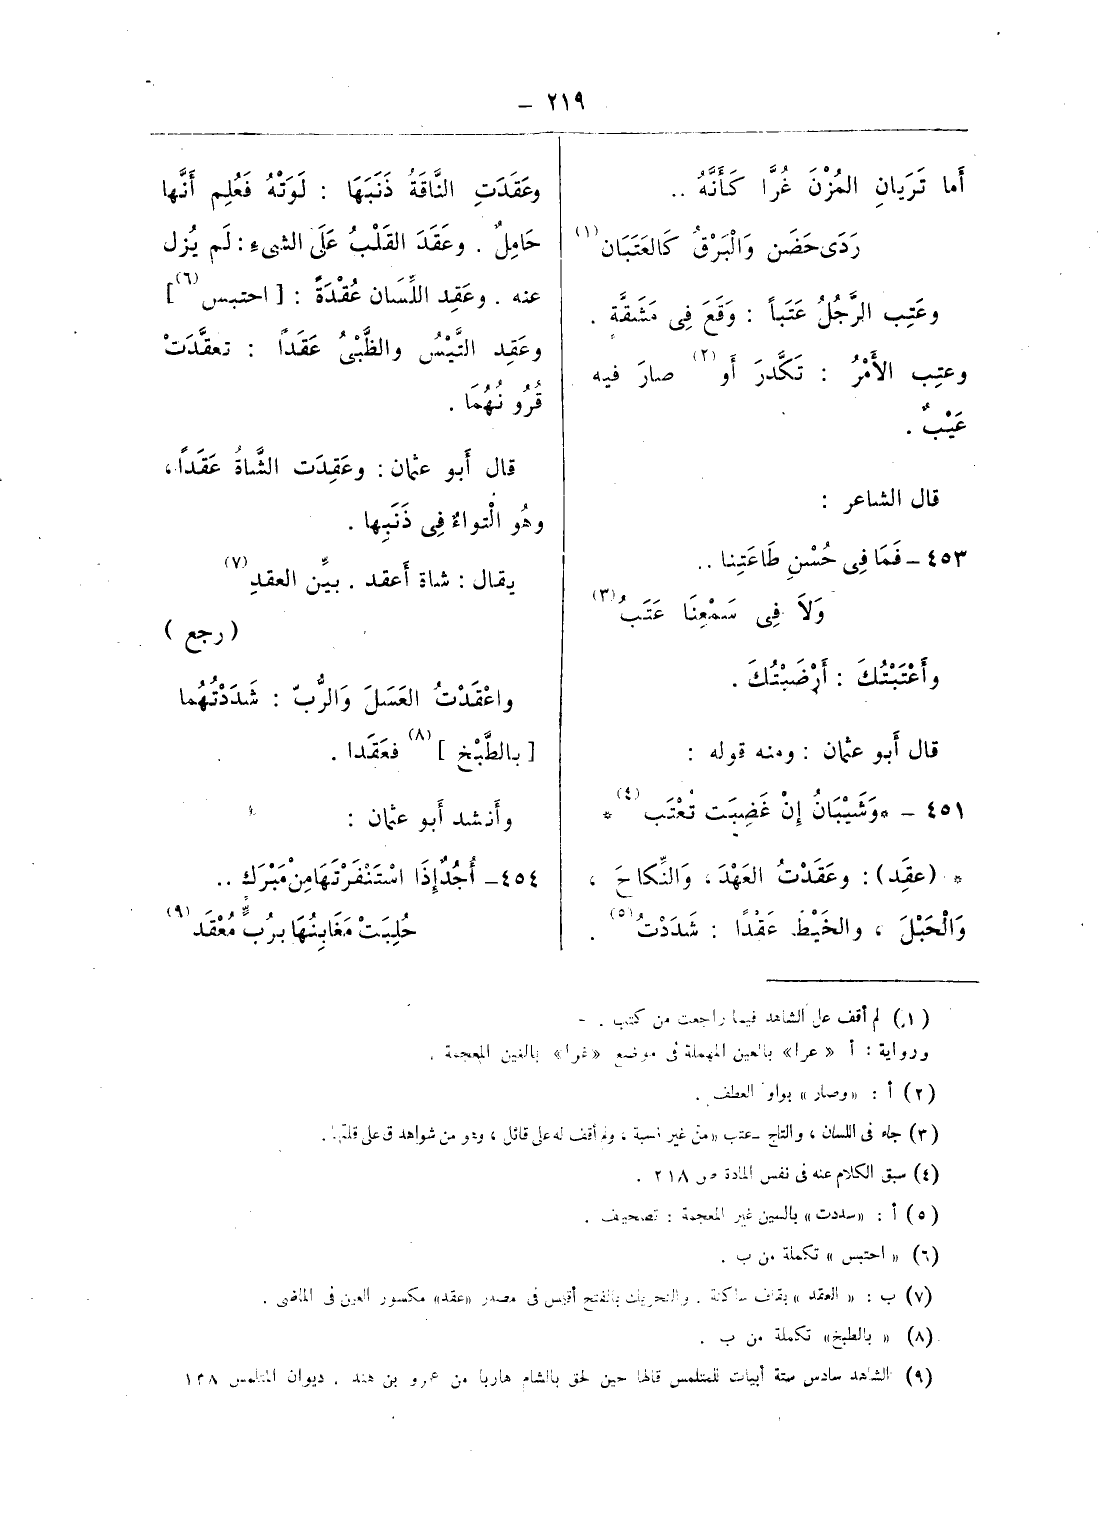 ٢١٩ –
أَما تَرَيانِ المُزْنَ غُرَّا كَأَنَّهُ ..
رَدَى حَضَن وَالْبَرْقُ كَالعَتَبَان (١)
وعَتِب الرَّجُلُ عَتَباً : وَقَعَ فِى مَشَقَّةٍ .
وعتِب الأَمْرُ : تَكَّدرَ أَو (٢) صارَ فيه
عَيْبٌ .
قال الشاعر :
٤٥٣ – فَمَا فِى حُسْنِ طَاعَتِنا ..
وَلاَ فِى سَمْعِنَا عَتَبُ (٣)
وأَعْتَبْتُكَ : أَرْضَيْتُكَ .
قال أَبو عثمان : ومنه قوله :
٤٥١ – *وَشَيْبَانُ إِنْ غَضِبَت تُعْتَب (٤) *
* (عقَد) : وعَقَدْتُ العَهْدَ ، وَالنِّكاحَ ،
وَالْحَبْلَ ، والخَيْطَ عَقْدًا : شَدَدْتُ (٥) .
وعَقَدَتِ النَّاقَةُ ذَنَبَهَا : لَوَتْهُ فَعُلِم أَنَّها
حَامِلٌ . وعَقَدَ القَلْبُ عَلَى الشىءِ : لَم يُزل
عنه . وعَقِد اللِّسَان عُقْدَةً : [ احتبس (٦) ]
وعَقِد التَّيْسُ والظَّبْىُ عَقَداً : تعقَّدَتْ
قُرُو نُهُمَا .
قال أَبو عثمان : وعَقِدَت الشَّاةُ عَقَداً ،
وهُو الْتواءٌ فِى ذَنَبِها .
يقال : شاة أَعقد . بيِّن العقدِ (٧)
( رجع )
واعْقَدْتُ العَسَلَ وَالرُّبّ : شَدَدْتُهُما
[ بالطَّبْخِ ] (٨) فعَقَدا .
وأَنشد أَبو عثمان :
٤٥٤ – أُجُدٌ إِذَا اسْتَنْفَرْتَهَا مِنْ مَبْرَكٍ ..
حُلِبَتْ مَغَابِنُهَا بِرُبٍّ مُعْقَد (٩)
(١) لم أقف على الشاهد فيما راجعت من كتب . –
ورواية : أ « عرا» بالعين المهملة فى موضع «غرا» بالغين المعجمة .
(٢) أ : «وصار» بواو العطف .
(٣) جاء فى اللسان ، والتاج – عتب «من غير نسبة ، ولم أقف له على قائل ، وهو من شواهد ق على قلتها .
(٤) سبق الكلام عنه فى نفس المادة ص ٢١٨ .
(٥) أ : «سددت» بالسين غير المعجمة : تصحيف .
(٦) « احتبس » تكملة من ب .
(٧) ب : « العقد » بقاف ساكنة . والتحريك بالفتح أقيس فى مصدر «عقد» مكسور العين فى الماضى .
(٨) « بالطبخ» تكملة من ب .
(٩) الشاهد سادس ستة أبيات للمتلمس قالها حين لحق بالشام هاربا من عمرو بن هند . ديوان المتلمس ١٣٨